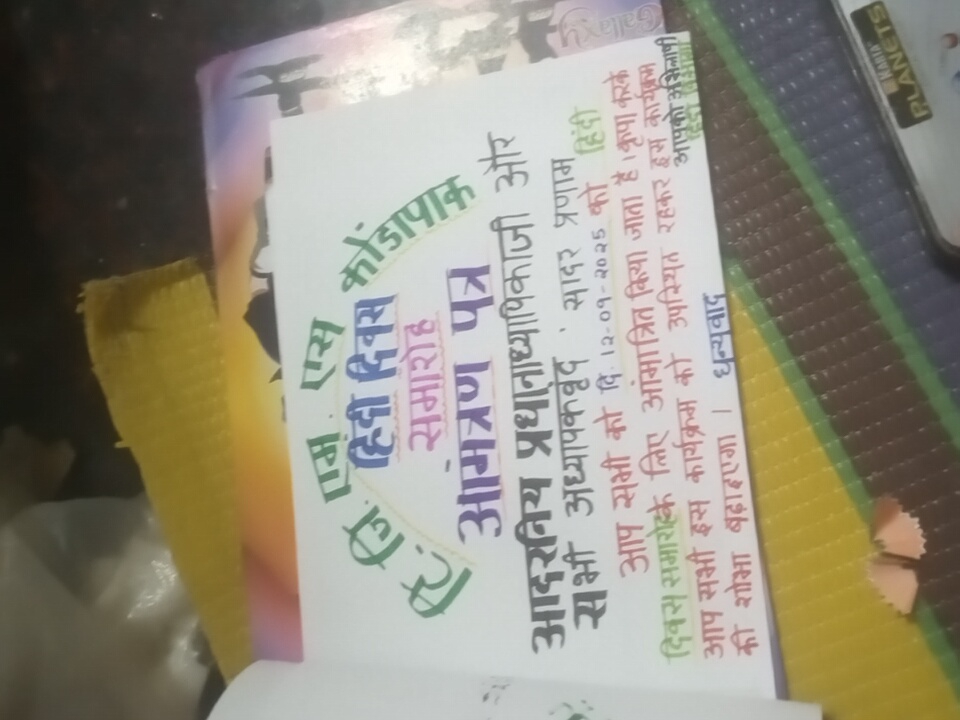 टि. जि. एम. एस कोंडापाक
हिंदी दिवस
समारोह
आमंत्रण पत्र
आदरनिय प्रधानाध्यापिकाजी और
सभी अध्यापकवृदं सादर प्रणाम
आप सभी को दि. 12-09-2025 को हिंदी
दिवस समारोह के लिए आंमात्रित किया जाता है। कृपा करके
आप सभी इस कार्यक्रम को उपस्थित रहकर इस कार्यक्रम
की शोभा बढ़ाइएगा । धन्यवाद आपको अभिलाषी
Galaxy
PLANETS